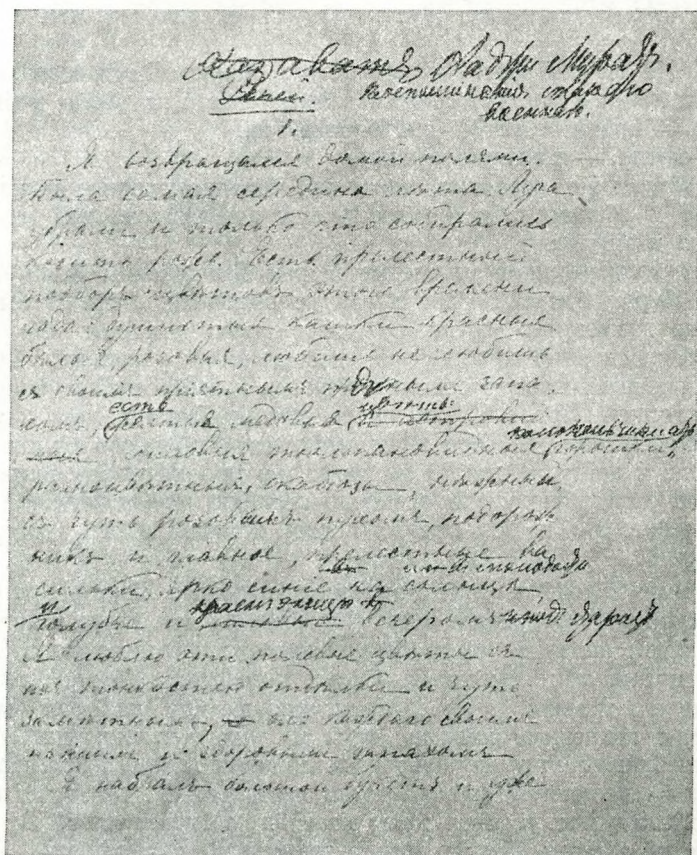 Хазаватъ Хаджи Муратъ.
Репей. Воспоминанія стараго
военнаго.
1.
Я возвращался домой полями.
Была самая середина лѣта. Луга
убрали и только что собирались
косить рожь. Есть прелестный
подборъ цвѣтовъ этого времени
года: душистыя кашки красныя
бѣлыя, розовыя, любишь не любишь
съ своимъ пріятнымъ запа
хомъ, есть желтые медовые цвѣты
колокольчиками
лиловыя тюльпановидныя горошки,
разноцвѣтныя, скабіозы, нѣжный
съ чуть розовымъ пухомъ, подорож
никъ и главное, прелестные ва
сильки, ярко синіе на солнцѣ
и въ молодости
голубые и краснѣющіе вечеромъ и подъ старость
Я люблю эти полевые цвѣты съ
ихъ тонкостью отдѣлки и чуть
замѣтнымъ, для каждаго своимъ
нѣжнымъ и здоровымъ запахомъ
Я набралъ большой букетъ и уже